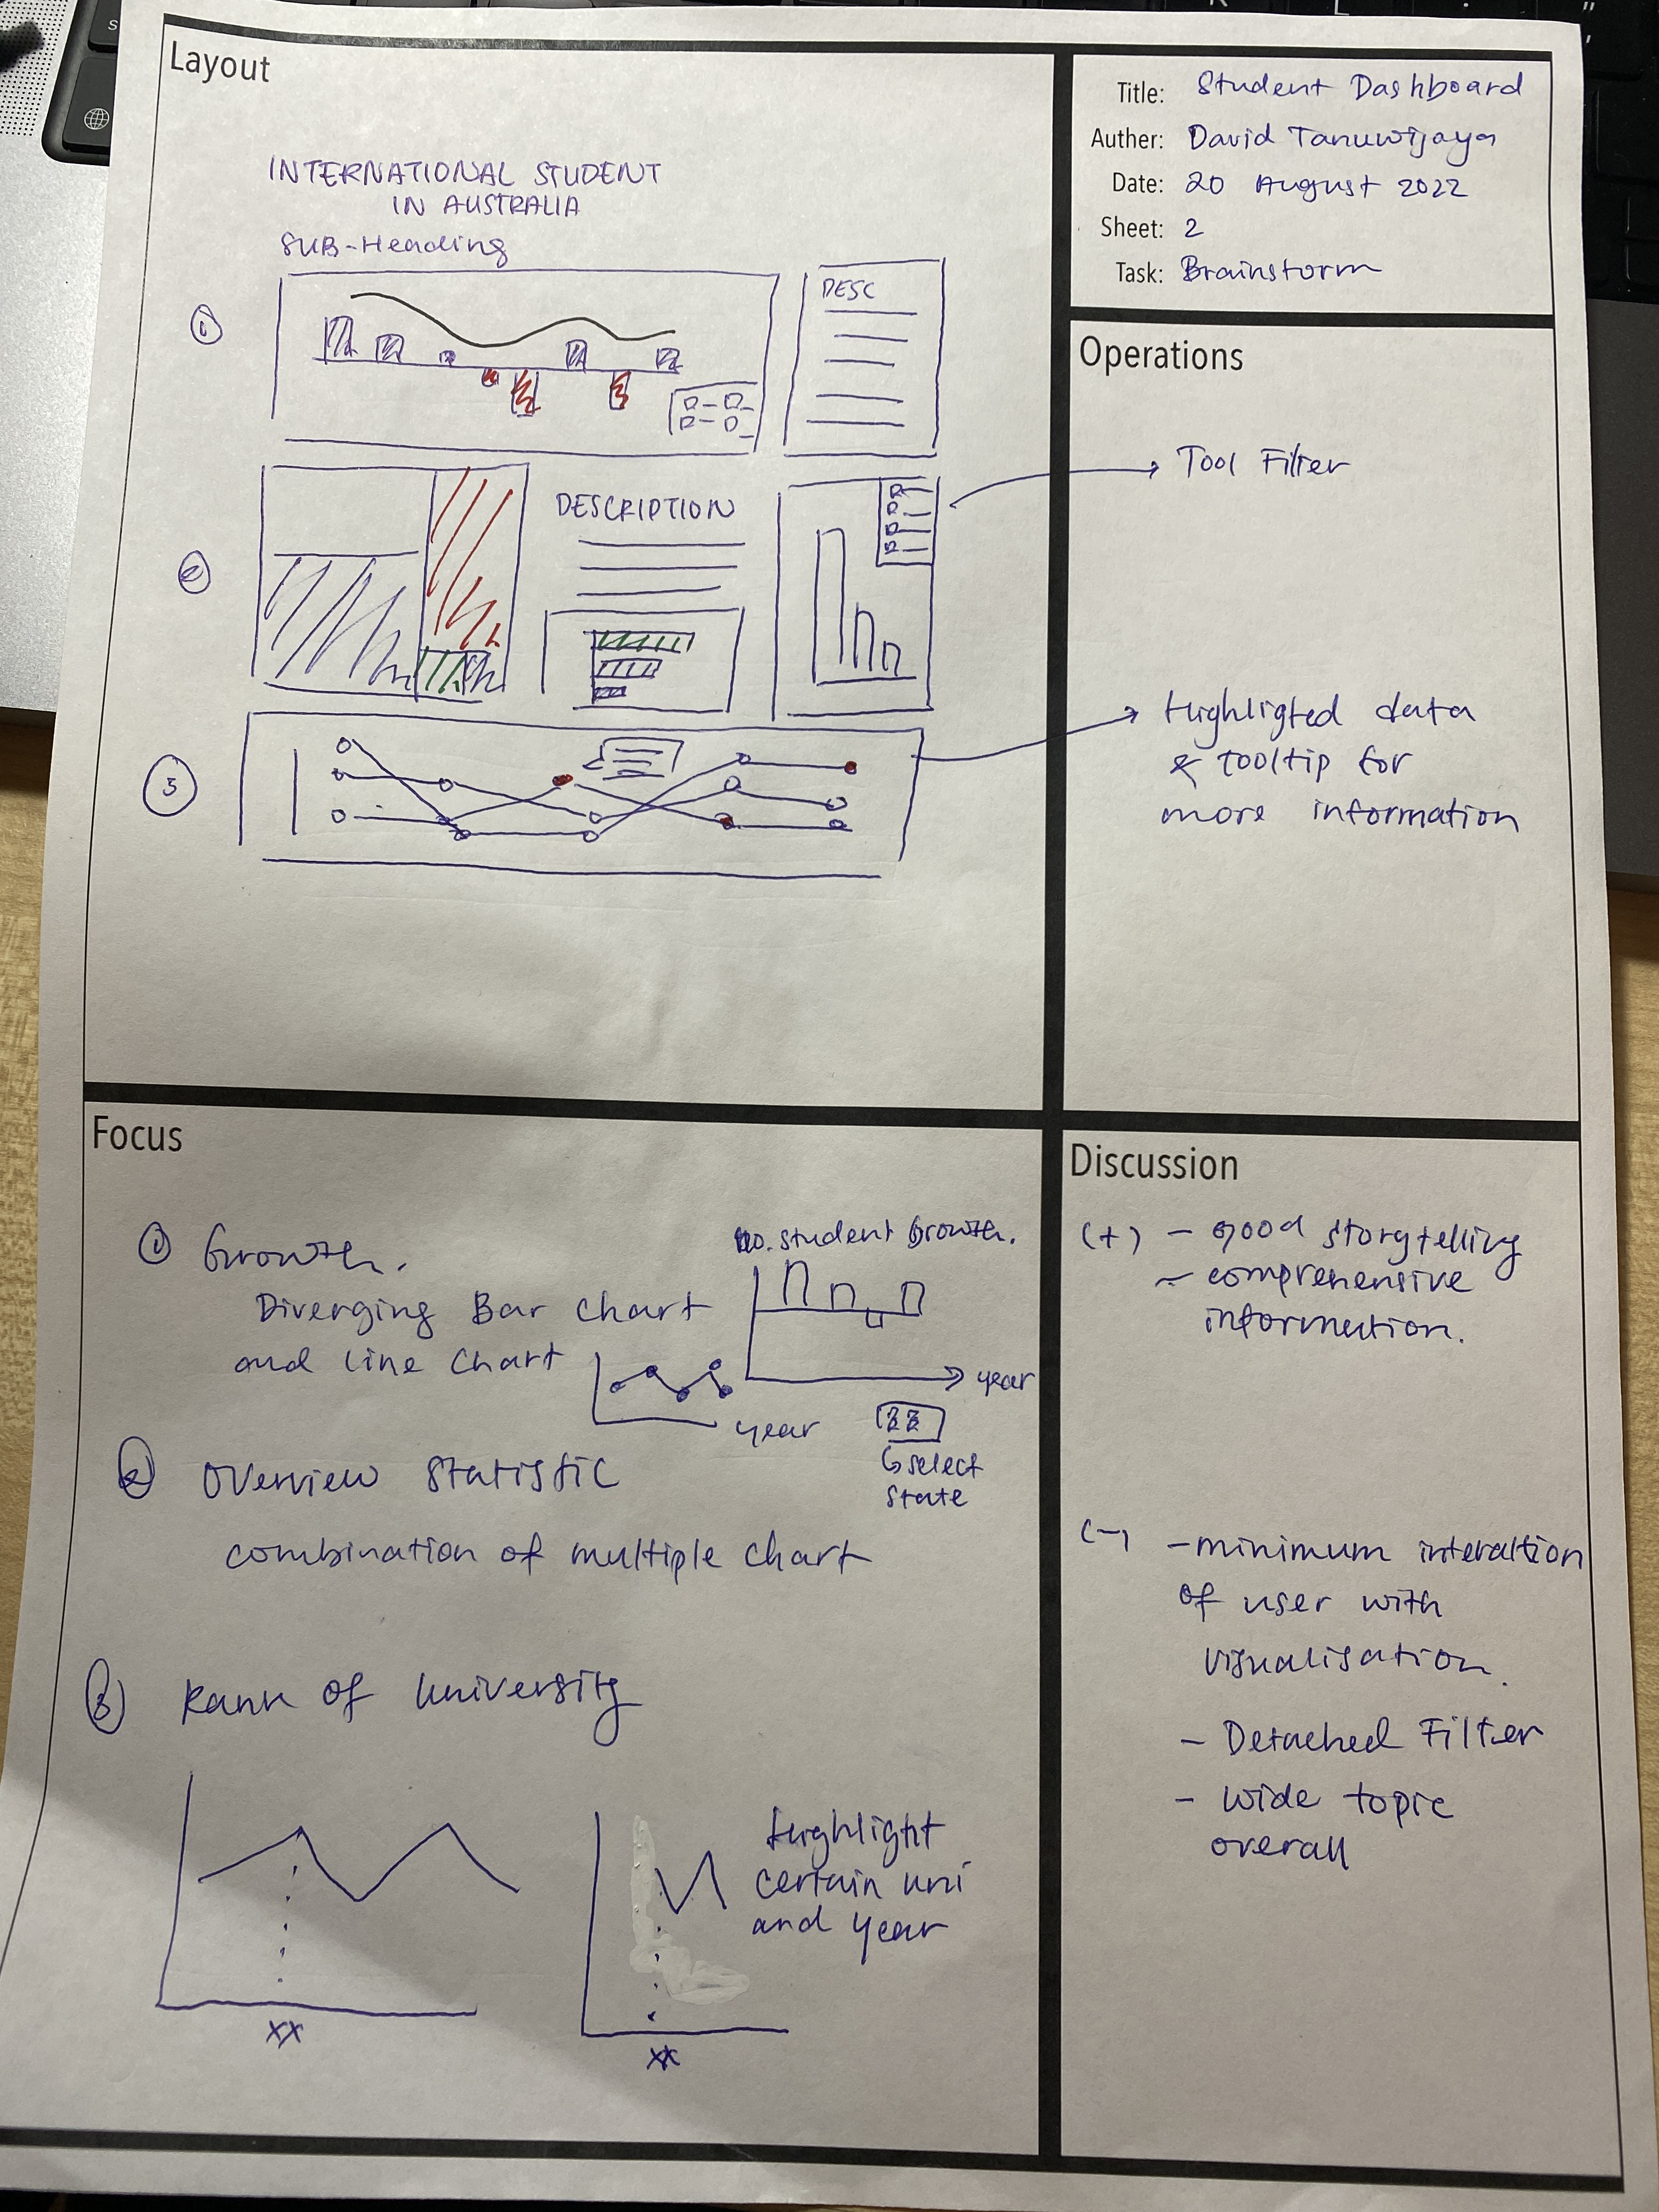 Layout
INTERNATIONAL STUDENT
IN AUSTRALIA
SUB-Heading
1
DESC
2
DESCRIPTION
3
Title: Student Dashboard
Auther: David Tanuwijaya
Date: 20 August 2022
Sheet: 2
Task: Brainstorm
Operations
Tool Filter
Highligted data
& tooltip for
more information
Focus
1 Growth.
Diverging Bar chart
and line chart
no. student Growth.
year
year
select
state
2 Overview Statistic
combination of multiple chart
3 Rank of university
xx
xx
Highlight
certain uni
and year
Discussion
(+) - good storytelling
- comprehensive
information.
(-) - minimum interaction
of user with
visualisation.
- Detached Filter
- Wide topic
overall